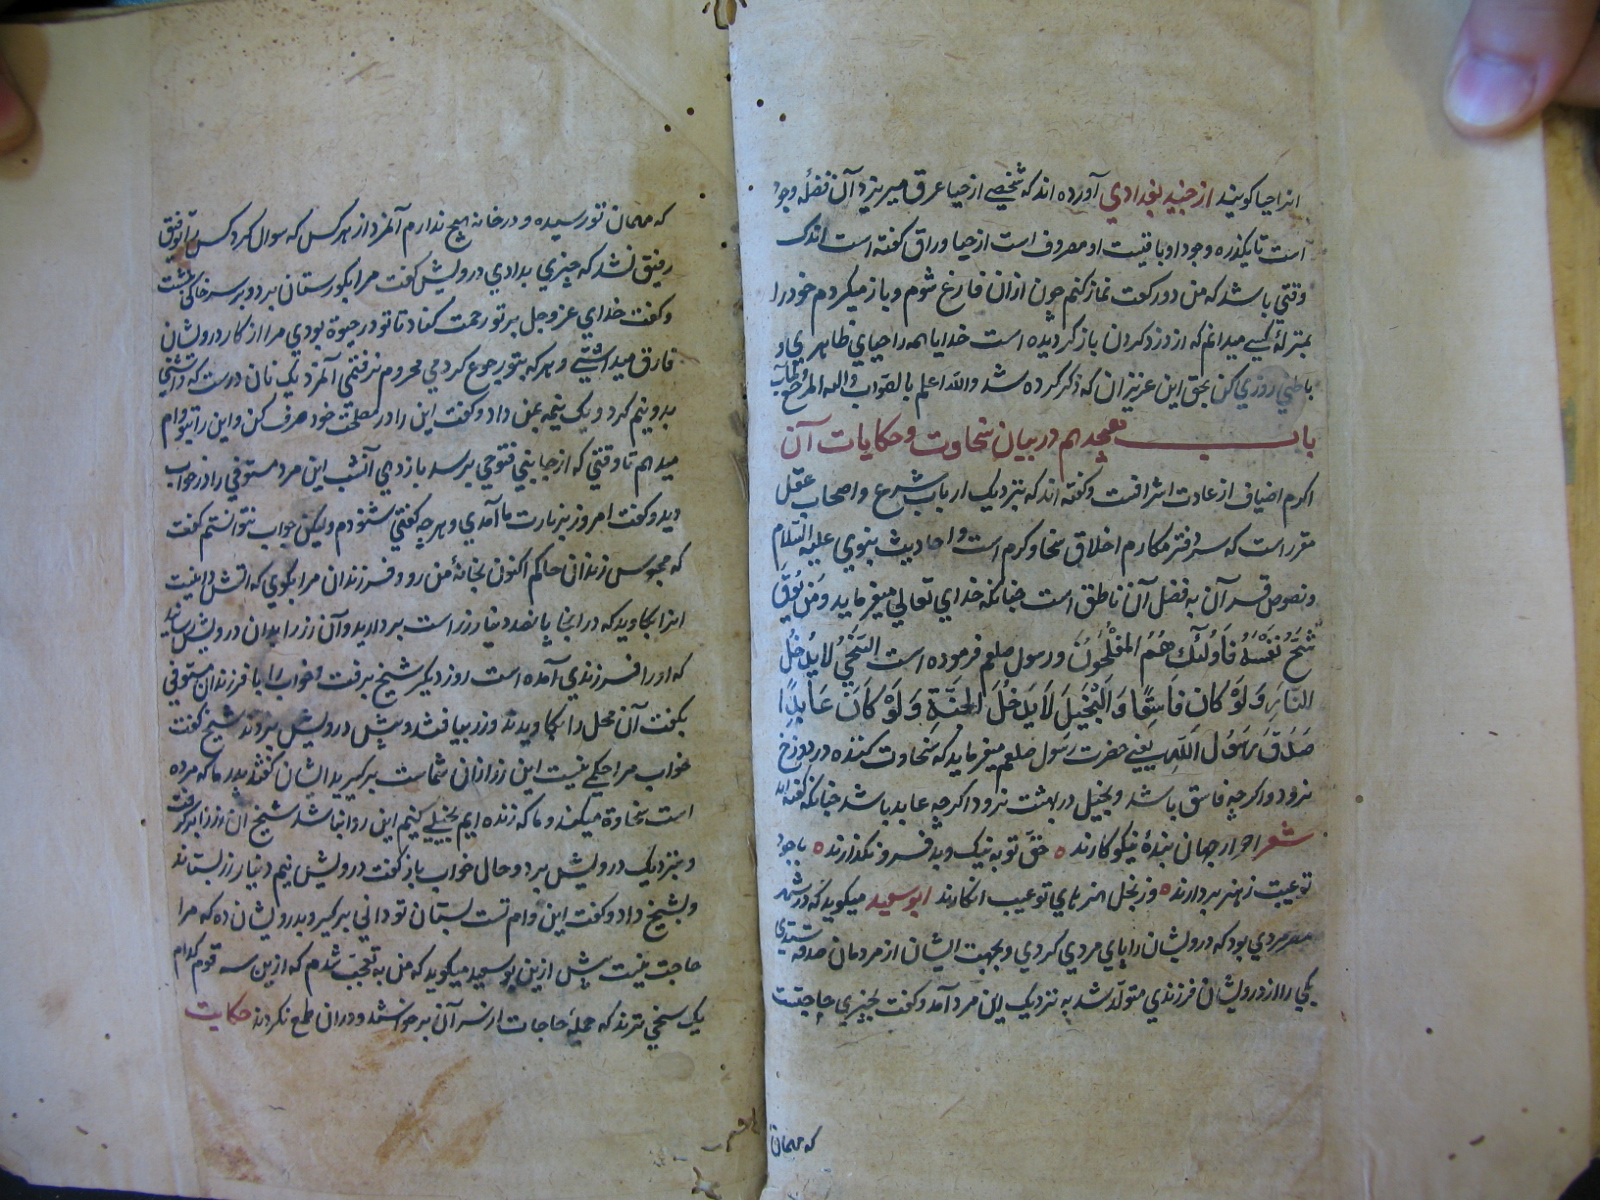 انرا حیا کویند از جنید بغدادی آورده اند که شخصی از حیا عرق میریزد آن فضلهٔ وجود
است تا یکذره وجود او باقیست او مصروف است از حیا وراق کفته است اندک
وقتی باشد که من دو رکعت نماز کنم چون ازان فارغ شوم و باز میکردم خود را
بمنزلهٔ کسی میدانم که از دزدکردن باز کردیده است خدایا همه را حیای ظاهری و
باطنی روزی کن بحق این عزیزان که ذکر کرده شد والله اعلم بالصواب و الیه المرجع و المآب
باب هجدهم در بیان سخاوت و حکایات آن
اکرم اضیاف از عادت اشرافست و کفته اند که بنزدیک ارباب شرع و اصحاب عقل
مقرر است که سر دفتر مکارم اخلاق سخا و کرم است و احادیث نبوی علیه السلام
و نصوص قرآن به فضل آن ناطق است چنانکه خدای تعالی میفرماید وَمَن یُوقَ
شُحَّ نَفْسِهٖ فَاُولٰٓئِکَ هُمُ المُفْلِحُونَ و رسول صلعم فرموده است السَّخِیُّ لَا یَدْخُلُ
النَّارَ وَلَوْ کَانَ فَاسِقًا وَالْبَخِیلُ لَا یَدْخُلُ الْجَنَّةَ وَلَوْ کَانَ عَابِدًا
صَدَقَ رَسُولُ اللّٰهِ یعنی حضرت رسول صلعم میفرماید که سخاوت کننده در دوزخ
نرود و اکرچه فاسق باشد و بخیل در بهشت نرود اکرچه عابد باشد چنانکه کفته اند
شعر احرار جهان بندهٔ نیکو کارند ه حق تو به نیک و بد فرو نکذارند ه با جود
تو عیبت ز هنر بردارند ه وز بخل هنرهای تو عیب انکارند ابو سعید میکوید که در شهر
مصر مردی بود که درویشان را پای مردی کردی و بجهت ایشان از مردمان صدقه ستدی
یکی را از درویشان فرزندی متولد شد به نزدیک این مرد آمد و کفت بچیزی حاجتست
که مهمان
که مهمان نو رسیده و در خانه هیچ ندارم آنمرد از هرکس که سوال کرد کس را توفیق
رفیق نشد که چیزی بدادی درویش کفت مرا بکورستان برد و بر سر خاکی بنشست
و کفت خدای عز و جل بر تو رحمت کناد تا تو در حیوة بودی مرا از کار درویشان
فارق میداشتی و هرکه بتو رجوع کردی محروم نرفتی آنمرد یک نان درست که داشتی
بدو نیم کرد و یک نیمه بمن داد و کفت این را در مصلحت خود صرف کن و این را بتو وام
میدهم تا وقتی که از جایی فتوحی برسد باز دهی آنشب این مرد مستوفی را در خواب
دید و کفت امروز بزیارت ما آمدی و هرچه کفتی شنودم ولیکن جواب نتوانستم کفت
که محبوس زندانی حاکم اکنون بخانهٔ من رو و فرزندان مرا بکوی که آتش دانیست
انرا بکاوید که در انجا پانصد دینار زر است بردارید و آن زر را بدان درویش رسانید
که او را فرزندی آمده است روز دیکر شیخ برفت و خواب را با فرزندان مستوفی
بکفت آن محل را بکاویدند و زر بیافتند و پیش درویش بردند شیخ کفت
خواب مرا حکمی نیست این زر ارزانی شماست برکیرید ایشان کفتند پدر ما که مرده
است سخاوة میکند و ما که زنده ایم بخیلی کنیم این روا نباشد شیخ ان زر را برکرفت
و بنزدیک درویش برد و حال خواب باز کفت درویش نیم دینار زر بستاند
و بشیخ داد و کفت این وام تست بستان تو دانی برکیر و بدرویشان ده که مرا
حاجت نیست پیش ازین بو سعید میکوید که من به تعجب شدم که ازین سه قوم کدام
یک سخی ترند که جملهٔ حاجات از سر آن برخواستند و دران طمع نکردند حکایت